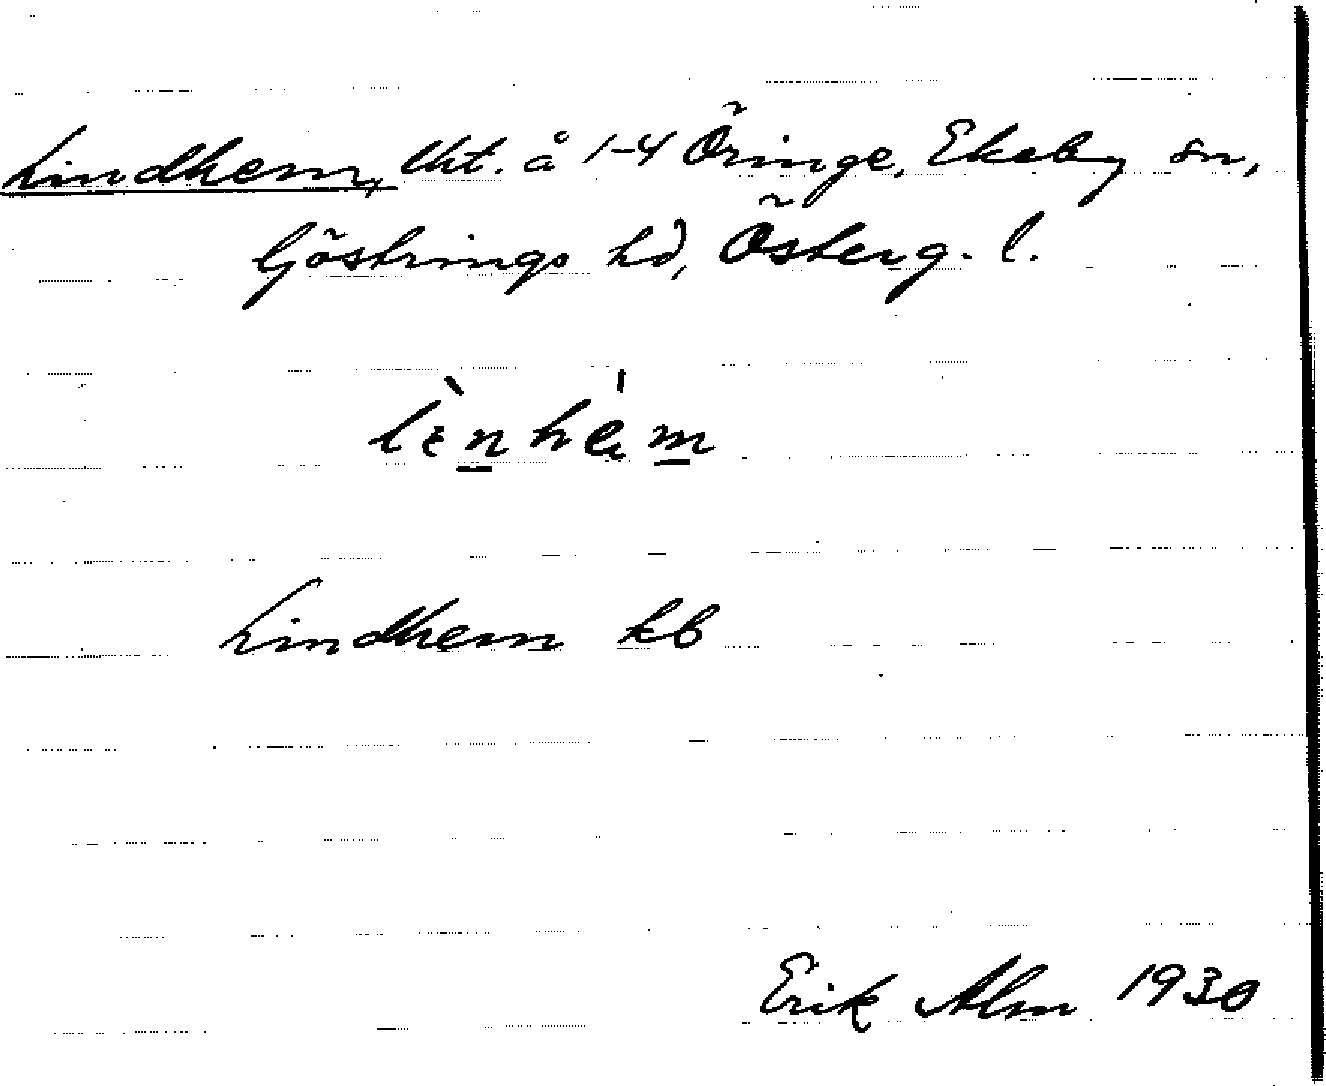 Lindhem, lht. å 1-4 Öringe, Ekeby sn,
Göstrings hd, Österg. l.
Lindhem kb
Erik Alm 1930